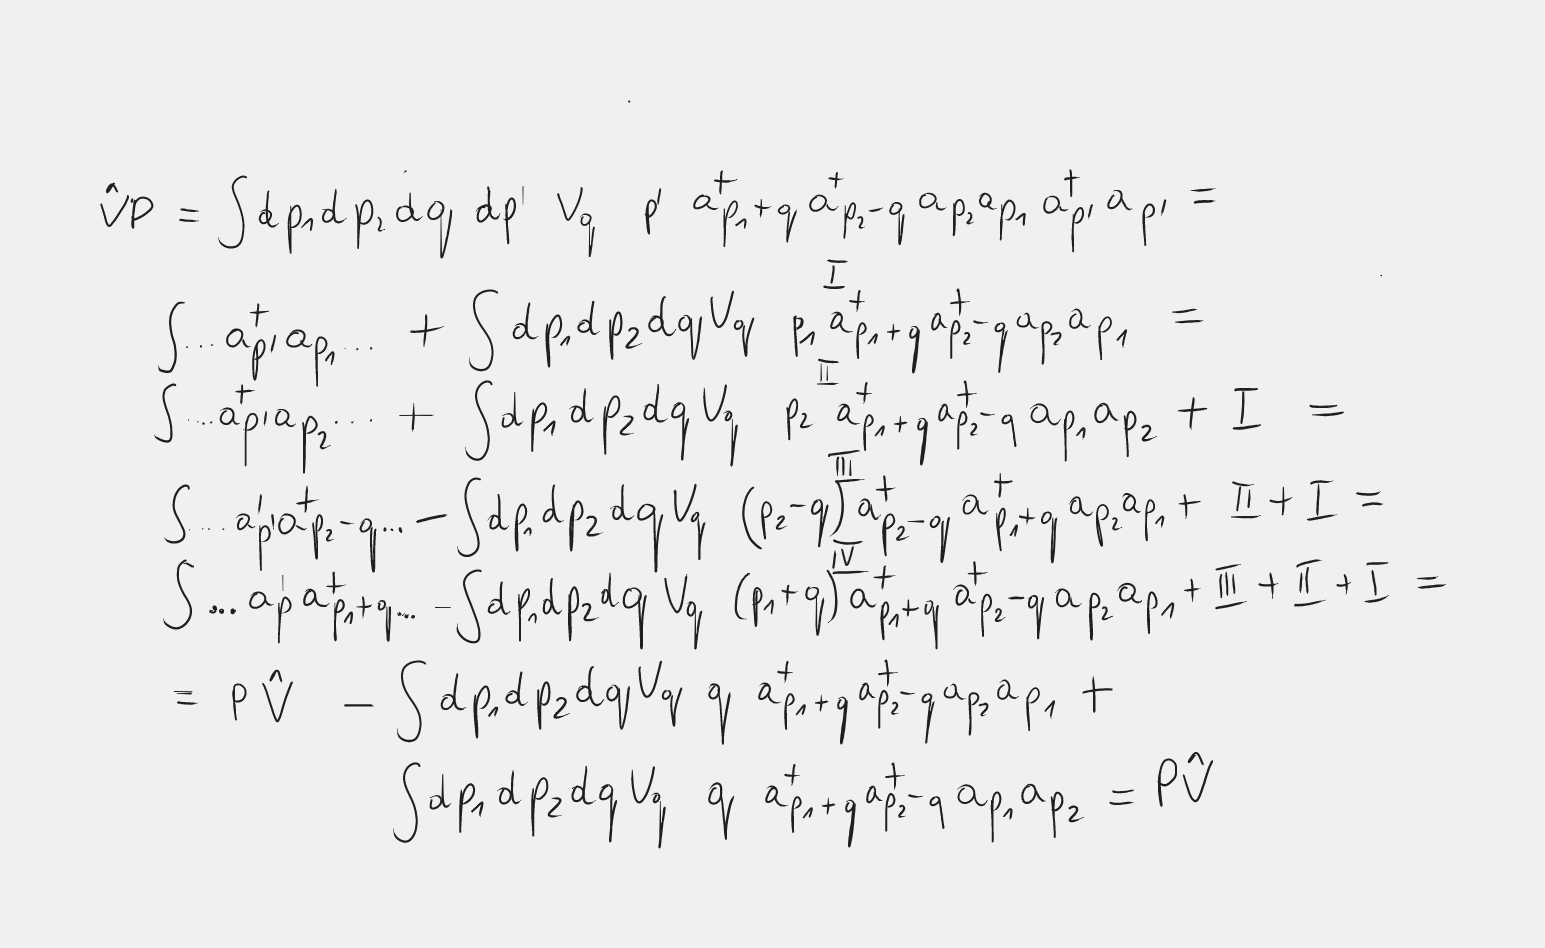 V̂P = ∫dp₁dp₂dq dp' V_q p' a⁺_{p₁+q} a⁺_{p₂-q} a_{p₂} a_{p₁} a⁺_{p'} a_{p'} =
∫... a⁺_{p'} a_{p₁} ... + ∫dp₁dp₂dq V_q p₁ a⁺_{p₁+q} a⁺_{p₂-q} a_{p₂} a_{p₁} (I) =
∫... a⁺_{p'} a_{p₂} ... + ∫dp₁dp₂dq V_q p₂ a⁺_{p₁+q} a⁺_{p₂-q} a_{p₁} a_{p₂} (II) + I =
∫.... a'_{p'} a⁺_{p₂-q} ... - ∫dp₁dp₂dq V_q (p₂-q) a⁺_{p₂-q} a⁺_{p₁+q} a_{p₂} a_{p₁} (III) + II + I =
∫... a'_p a⁺_{p₁+q} ... - ∫dp₁dp₂dq V_q (p₁+q) a⁺_{p₁+q} a⁺_{p₂-q} a_{p₂} a_{p₁} (IV) + III + II + I =
= P V̂ - ∫dp₁dp₂dq V_q q a⁺_{p₁+q} a⁺_{p₂-q} a_{p₂} a_{p₁} +
∫dp₁dp₂dq V_q q a⁺_{p₁+q} a⁺_{p₂-q} a_{p₁} a_{p₂} = P V̂